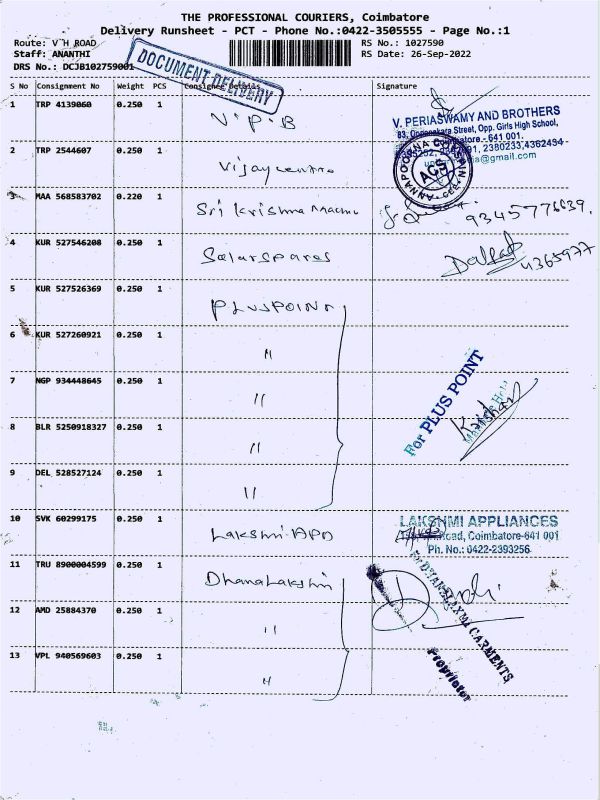 THE PROFESSIONAL COURIERS, Coimbatore
Delivery Runsheet - PCT - Phone No.:0422-3505555 - Page No.:1
Route: V H ROAD
RS No.: 1027590
Staff: ANANTHI
RS Date: 26-Sep-2022
DRS No.: DCJB102759001
DOCUMENT DELIVERY
S No Consignment No Weight PCS Consignee Details Signature
1 TRP 4139060 0.250 1 V.P.B
V. PERIASWAMY AND BROTHERS
83, Street, Opp. Girls High School,
Coimbatore - 641 001.
2380233,4362434
@gmail.com
2 TRP 2544607 0.250 1 Vijay centre
ANNAPOORNA
ACS
3 MAA 568583702 0.220 1 Sri Krishna
9345776639.
4 KUR 527546208 0.250 1 Solar Spares
4365977
5 KUR 527526369 0.250 1 PLUSPOINT
6 KUR 527260921 0.250 1 "
7 NGP 934448645 0.250 1 "
For PLUS POINT
8 BLR 5250918327 0.250 1 "
9 DEL 528527124 0.250 1 "
10 SVK 60299175 0.250 1 Lakshmi APP
LAKSHMI APPLIANCES
Road, Coimbatore-641 001
Ph. No.: 0422-2393256
11 TRU 8900004599 0.250 1 Dhanalakshmi
For DHANALAXMI GARMENTS
Proprietor
12 AMD 25884370 0.250 1 "
13 VPL 940569603 0.250 1 "